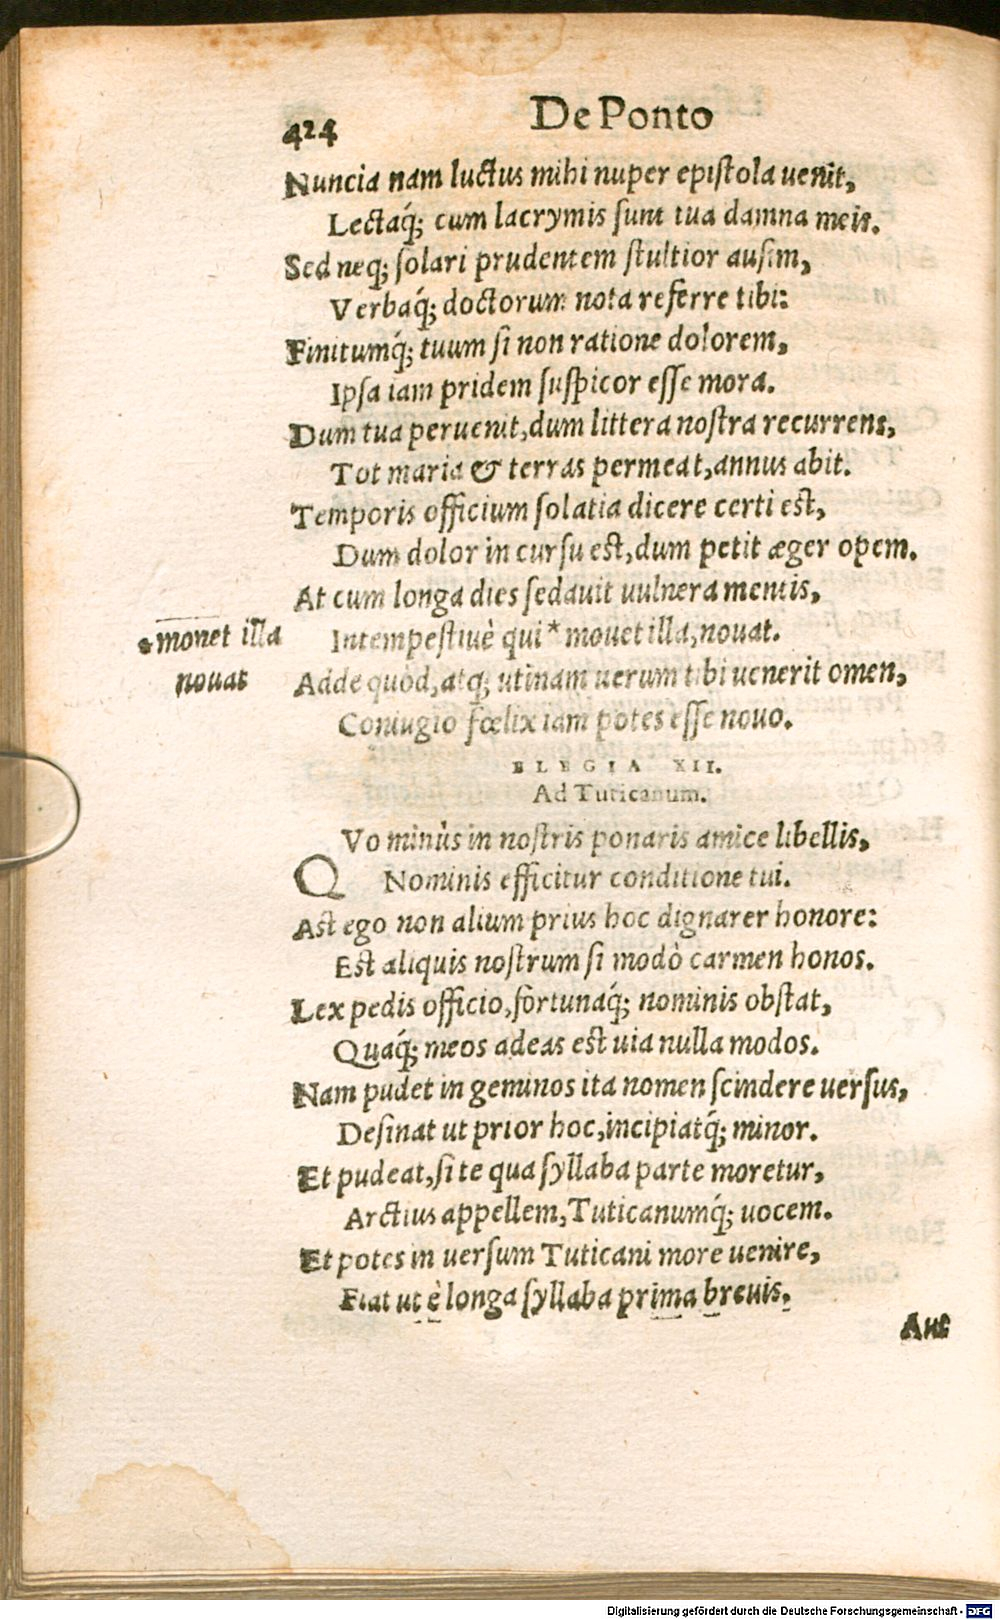 424
De Ponto
Nuncia nam luctus mihi nuper epistola uenit,
Lectaq́; cum lacrymis sunt tua damna meis.
Sed neq; solari prudentem stultior ausim,
Verbaq́; doctorum nota referre tibi:
Finitumq́; tuum si non ratione dolorem,
Ipsa iam pridem suspicor esse mora.
Dum tua peruenit, dum littera nostra recurrens,
Tot maria & terras permeat, annus abit.
Temporis officium solatia dicere certi est,
Dum dolor in cursu est, dum petit æger opem.
At cum longa dies sedauit uulnera mentis,
Intempestiuè qui * mouet illa, nouat.
* monet illa
nouat
Adde quòd, atq; utinam uerum tibi uenerit omen,
Coniugio fœlix iam potes esse nouo.
ELEGIA XII.
Ad Tuticanum.
QVo minùs in nostris ponaris amice libellis,
Nominis efficitur conditione tui.
Ast ego non alium prius hoc dignarer honore:
Est aliquis nostrum si modò carmen honos.
Lex pedis officio, fortunaq́; nominis obstat,
Quaq́; meos adeas est uia nulla modos.
Nam pudet in geminos ita nomen scindere uersus,
Desinat ut prior hoc, incipiatq́; minor.
Et pudeat, si te qua syllaba parte moretur,
Arctius appellem, Tuticanumq́; uocem.
Et potes in uersum Tuticani more uenire,
Fiat ut è longa syllaba prima breuis.
Aut
Digitalisierung gefördert durch die Deutsche Forschungsgemeinschaft - DFG